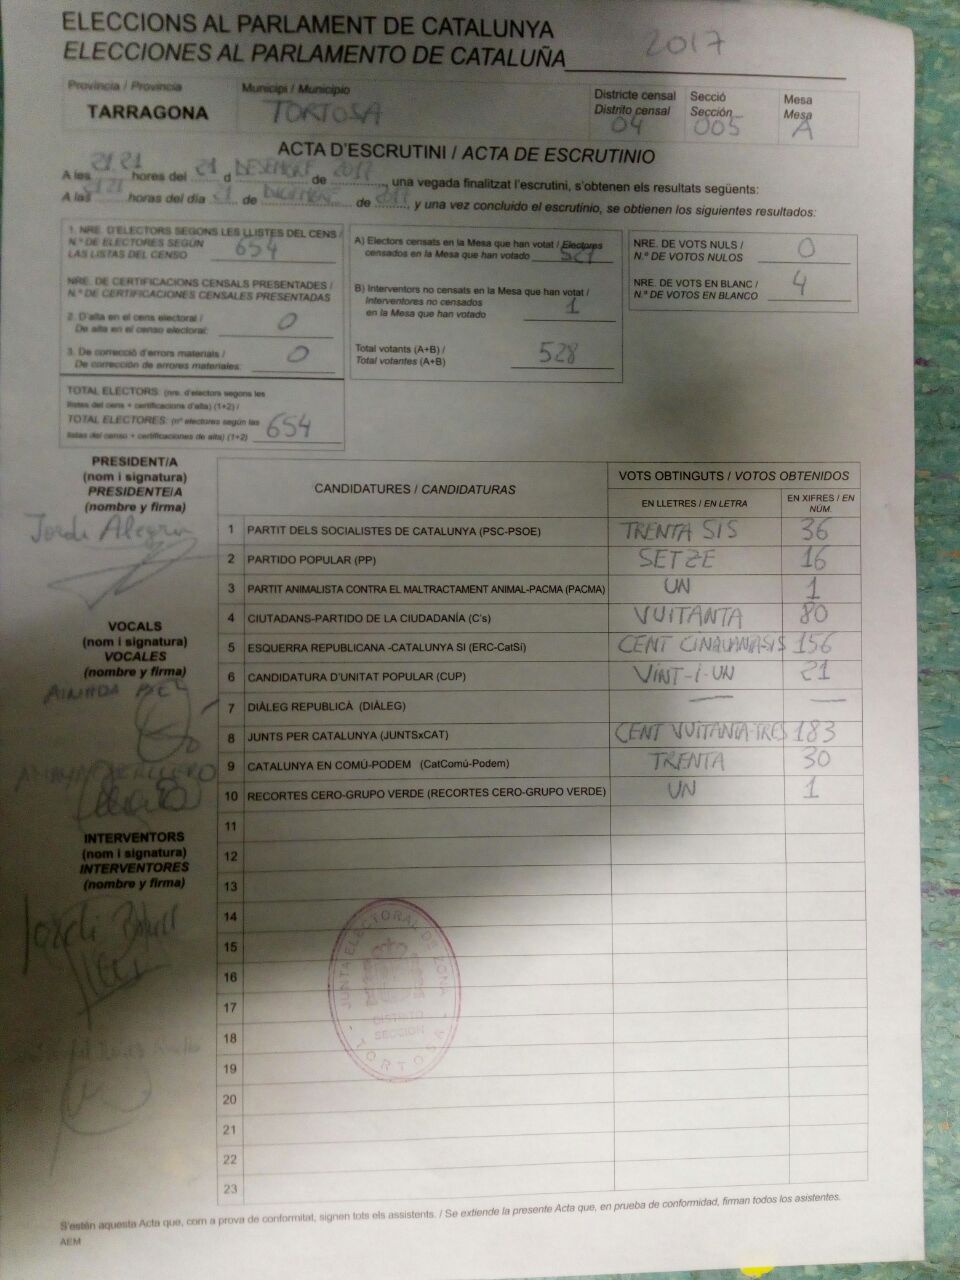 ELECCIONS AL PARLAMENT DE CATALUNYA
ELECCIONES AL PARLAMENTO DE CATALUÑA 2017
Província / Provincia
TARRAGONA
Municipi / Municipio
TORTOSA
Districte censal
Distrito censal
04
Secció
Sección
005
Mesa
Mesa
A
ACTA D'ESCRUTINI / ACTA DE ESCRUTINIO
A les 21,21 hores del 21 d DESEMBRE de 2017, una vegada finalitzat l'escrutini, s'obtenen els resultats següents:
A las horas del día de de , y una vez concluido el escrutinio, se obtienen los siguientes resultados:
1. NRE. D'ELECTORS SEGONS LES LLISTES DEL CENS /
N.º DE ELECTORES SEGÚN
LAS LISTAS DEL CENSO 654
NRE. DE CERTIFICACIONS CENSALS PRESENTADES /
N.º DE CERTIFICACIONES CENSALES PRESENTADAS
2. D'alta en el cens electoral /
De alta en el censo electoral: 0
3. De correcció d'errors materials /
De corrección de errores materiales: 0
TOTAL ELECTORS: (nre. d'electors segons les
llistes del cens + certificacions d'alta) (1+2) /
TOTAL ELECTORES: (nº electores según las
listas del censo + certificaciones de alta) (1+2) 654
A) Electors censats en la Mesa que han votat / Electores
censados en la Mesa que han votado 527
B) Interventors no censats en la Mesa que han votat /
Interventores no censados
en la Mesa que han votado 1
Total votants (A+B) /
Total votantes (A+B) 528
NRE. DE VOTS NULS /
N.º DE VOTOS NULOS 0
NRE. DE VOTS EN BLANC /
N.º DE VOTOS EN BLANCO 4
PRESIDENT/A
(nom i signatura)
PRESIDENTE/A
(nombre y firma)
Jordi Alegria
VOCALS
(nom i signatura)
VOCALES
(nombre y firma)
INTERVENTORS
(nom i signatura)
INTERVENTORES
(nombre y firma)
Jordi
CANDIDATURES / CANDIDATURAS
VOTS OBTINGUTS / VOTOS OBTENIDOS
EN LLETRES / EN LETRA
EN XIFRES / EN
NÚM.
1 PARTIT DELS SOCIALISTES DE CATALUNYA (PSC-PSOE) TRENTA SIS 36
2 PARTIDO POPULAR (PP) SETZE 16
3 PARTIT ANIMALISTA CONTRA EL MALTRACTAMENT ANIMAL-PACMA (PACMA) UN 1
4 CIUTADANS-PARTIDO DE LA CIUDADANÍA (C's) VUITANTA 80
5 ESQUERRA REPUBLICANA -CATALUNYA SI (ERC-CatSí) CENT 156
6 CANDIDATURA D'UNITAT POPULAR (CUP) VINT-I-UN 21
7 DIÀLEG REPUBLICÀ (DIÀLEG) — —
8 JUNTS PER CATALUNYA (JUNTSxCAT) CENT VUITANTA-TRES 183
9 CATALUNYA EN COMÚ-PODEM (CatComú-Podem) TRENTA 30
10 RECORTES CERO-GRUPO VERDE (RECORTES CERO-GRUPO VERDE) UN 1
11
12
13
14
15
16
17
18
19
20
21
22
23
JUNTA ELECTORAL DE ZONA
DISTRITO
SECCION
TORTOSA
S'estén aquesta Acta que, com a prova de conformitat, signen tots els assistents. / Se extiende la presente Acta que, en prueba de conformidad, firman todos los asistentes.
AEM